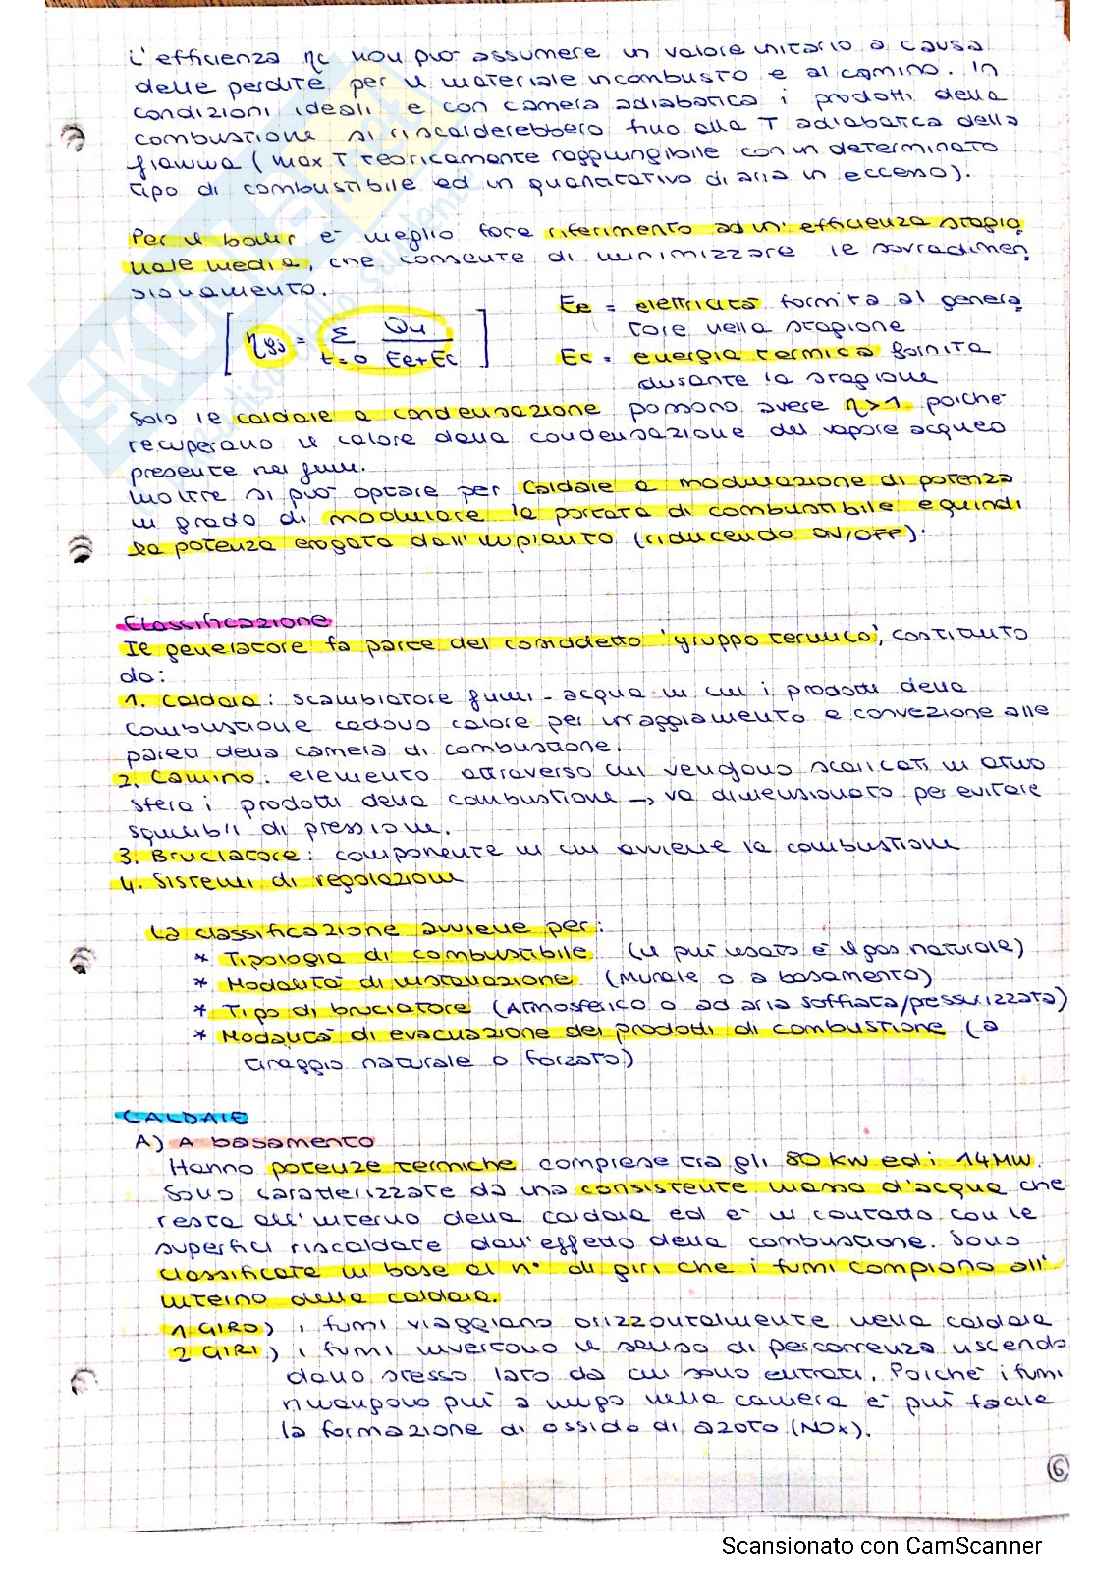 L'efficienza ηc non può assumere un valore unitario a causa
delle perdite per il materiale incombusto e al camino. In
condizioni ideali e con camera adiabatica i prodotti della
combustione si riscalderebbero fino alla T adiabatica della
fiamma (max T teoricamente raggiungibile con un determinato
tipo di combustibile ed un quantitativo di aria in eccesso).
Per il boiler è meglio fare riferimento ad un' efficienza stagio
nale media, che consente di minimizzare le sovradimen
sionamento.
[ηgs = Σ t=0 Qu / Ee+Ec]
Ee = elettricità fornita al genera
tore nella stagione
Ec = energia termica fornita
durante la stagione
Solo le caldaie a condensazione possono avere η>1 poichè
recuperano il calore della condensazione del vapore acqueo
presente nei fumi.
Inoltre si può optare per caldaie a modulazione di potenza
in grado di modulare la portata di combustibile e quindi
la potenza erogata dall'impianto (riducendo ON/OFF).
Classificazione
Il generatore fa parte del cosiddetto 'gruppo termico', costituito
da:
1. Caldaia: scambiatore fumi-acqua in cui i prodotti della
combustione cedono calore per irraggiamento e convezione alle
pareti della camera di combustione.
2. Camino: elemento attraverso cui vengono scaricati in atmo
sfera i prodotti della combustione → va dimensionato per evitare
squilibli di pressione.
3. Bruciatore: componente in cui avviene la combustione
4. Sistemi di regolazione
La classificazione avviene per:
* Tipologia di combustibile (il più usato è il gas naturale)
* Modalità di installazione (Murale o a basamento)
* Tipo di bruciatore (Atmosferico o ad aria soffiata/pressurizzata)
* Modalità di evacuazione dei prodotti di combustione (a
tiraggio naturale o forzato)
CALDAIE
A) A basamento
Hanno potenze termiche comprese tra gli 80 kW ed i 14MW.
Sono caratterizzate da una consistente massa d'acqua che
resta all'interno della caldaia ed è in contatto con le
superfici riscaldate dall'effetto della combustione. Sono
classificate in base al n° di giri che i fumi compiono all'
interno della caldaia.
1 GIRO) i fumi viaggiano orizzontalmente nella caldaia
2 GIRI) i fumi invertono il senso di percorrenza uscendo
dallo stesso lato da cui sono entrati. Poichè i fumi
rimangono più a lungo nella camera è più facile
la formazione di ossido di azoto (NOx).
6
Scansionato con CamScanner